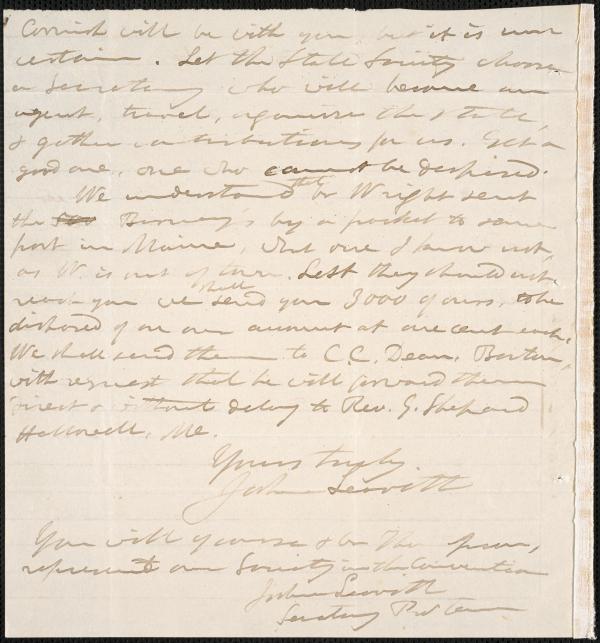 Cornish will be with you, but it is not
certain. Let the State Society choose
a Secretary who will become an
agent, travel, agonise the state,
& gather contributions for us. Get a
good one, one who cannot be despised.
We understand that Wright sent
the Birney's by a packet to some
port in Maine, what one I know not,
as W. is out of town. Lest they should not
reach you we shall send you 3000 of ours, to be
disposed of on our account at one cent each.
We shall send them to C.C. Dean, Boston,
with request that he will forward them
direct & without delay to Rev. G. Shepard
Hallowell, Me.
Yours truly,
Joshua Leavitt
You will of course
represent our Society in the Convention
Joshua Leavitt
Secretary Pro tem